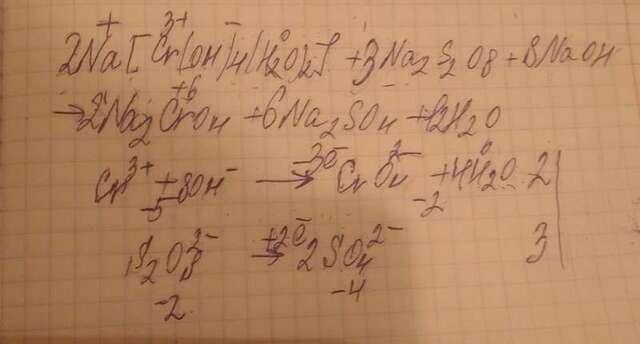 2Na[Cr(OH)4(H2O)2] + 3Na2S2O8 + 8NaOH
→ 2Na2CrO4 + 6Na2SO4 + 12H2O
Cr3+ + 8OH- -3e→ CrO4 2- + 4H2O 2
-5 -2
S2O8 2- +2e→ 2SO4 2- 3
-2 -4